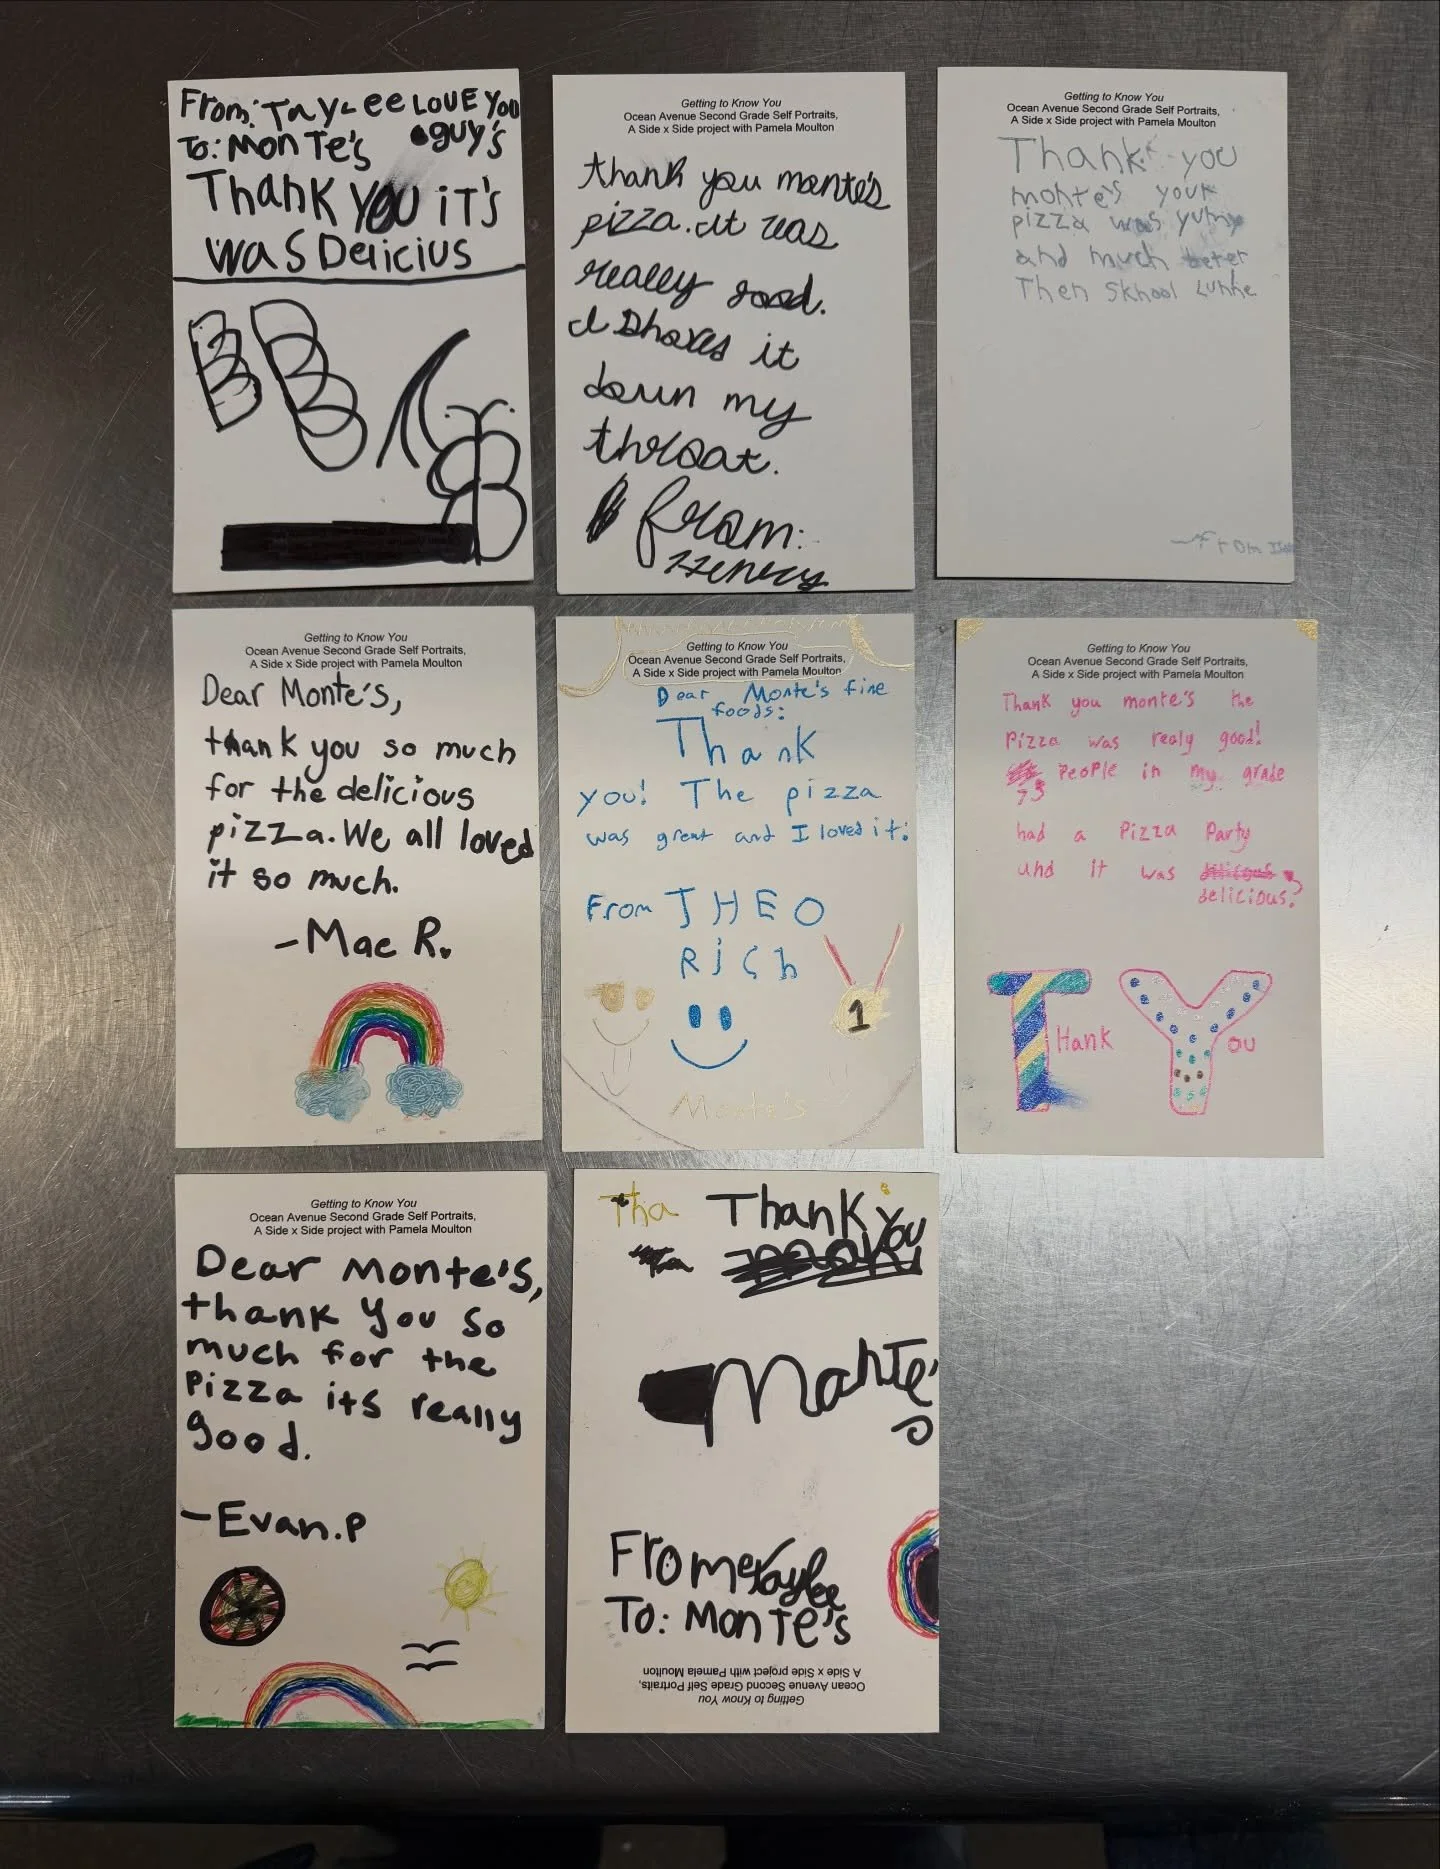 From: Taylee LOVE YOU
To: MonTe's guy's
Thank YOU iT's
was Delicius
Getting to Know You
Ocean Avenue Second Grade Self Portraits,
A Side x Side project with Pamela Moulton
thank you monte's
pizza. it was
really good.
I shoves it
down my
throat.
from:
Henery
Getting to Know You
Ocean Avenue Second Grade Self Portraits,
A Side x Side project with Pamela Moulton
Thank you
monte's your
pizza was yumy
and much beter
Then Skhool Lunhe
~From
Getting to Know You
Ocean Avenue Second Grade Self Portraits,
A Side x Side project with Pamela Moulton
Dear Monte's,
thank you so much
for the delicious
pizza. We all loved
it so much.
-Mae R.
Getting to Know You
Ocean Avenue Second Grade Self Portraits,
A Side x Side project with Pamela Moulton
Dear Monte's fine
foods:
Thank
you! The pizza
was great and I loved it!
From THEO
Rich
1
Monte's
Getting to Know You
Ocean Avenue Second Grade Self Portraits,
A Side x Side project with Pamela Moulton
Thank you monte's the
Pizza was realy good!
73 PeoPle in my grade
had a Pizza Party
and it was
delicious!
THank You
Getting to Know You
Ocean Avenue Second Grade Self Portraits,
A Side x Side project with Pamela Moulton
Dear Monte's,
thank you so
much for the
Pizza its really
good.
-Evan.P
Tha Thank You
Monte's
From Taylee
To: MonTe's
Getting to Know You
Ocean Avenue Second Grade Self Portraits,
A Side x Side project with Pamela Moulton